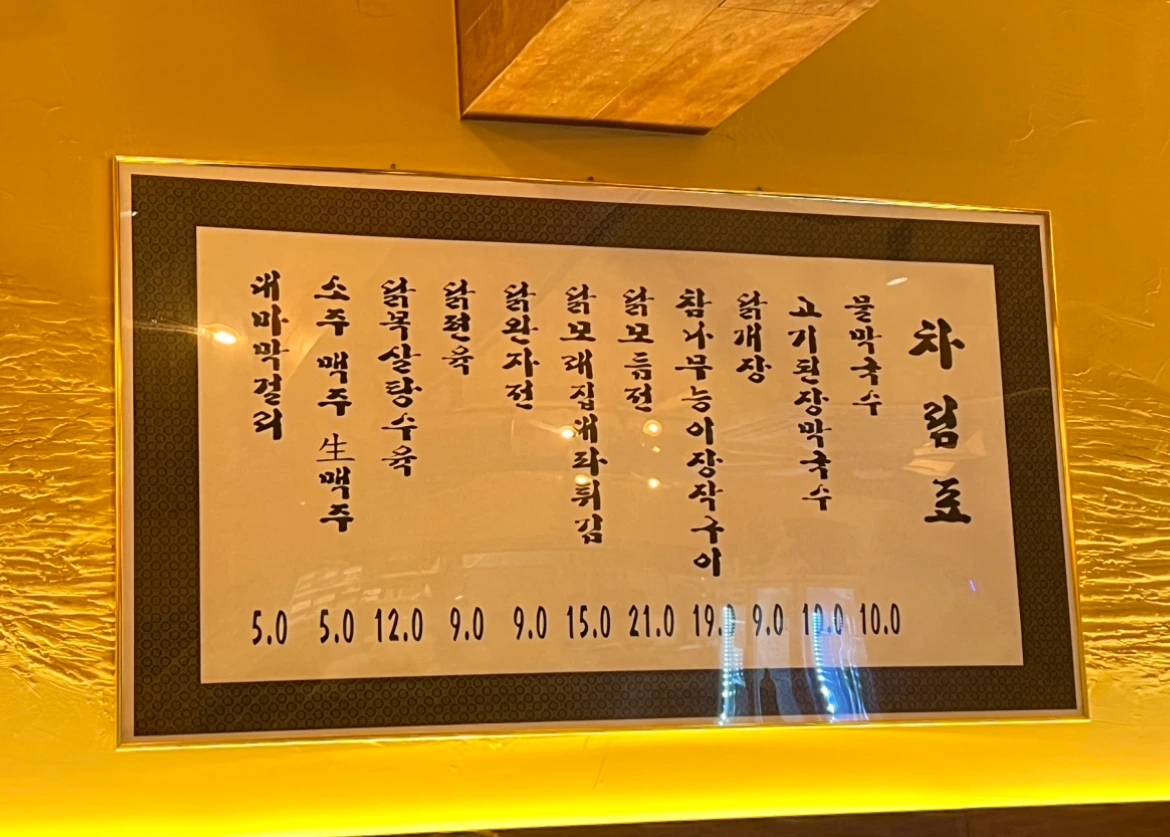 차림표
물막국수 10.0
고기된장막국수
닭개장 9.0
참나무능이장작구이 19.0
닭모듬전 21.0
닭모래집대파튀김 15.0
닭완자전 9.0
닭편육 9.0
닭목살탕수육 12.0
소주 맥주 生맥주 5.0
대마막걸리 5.0